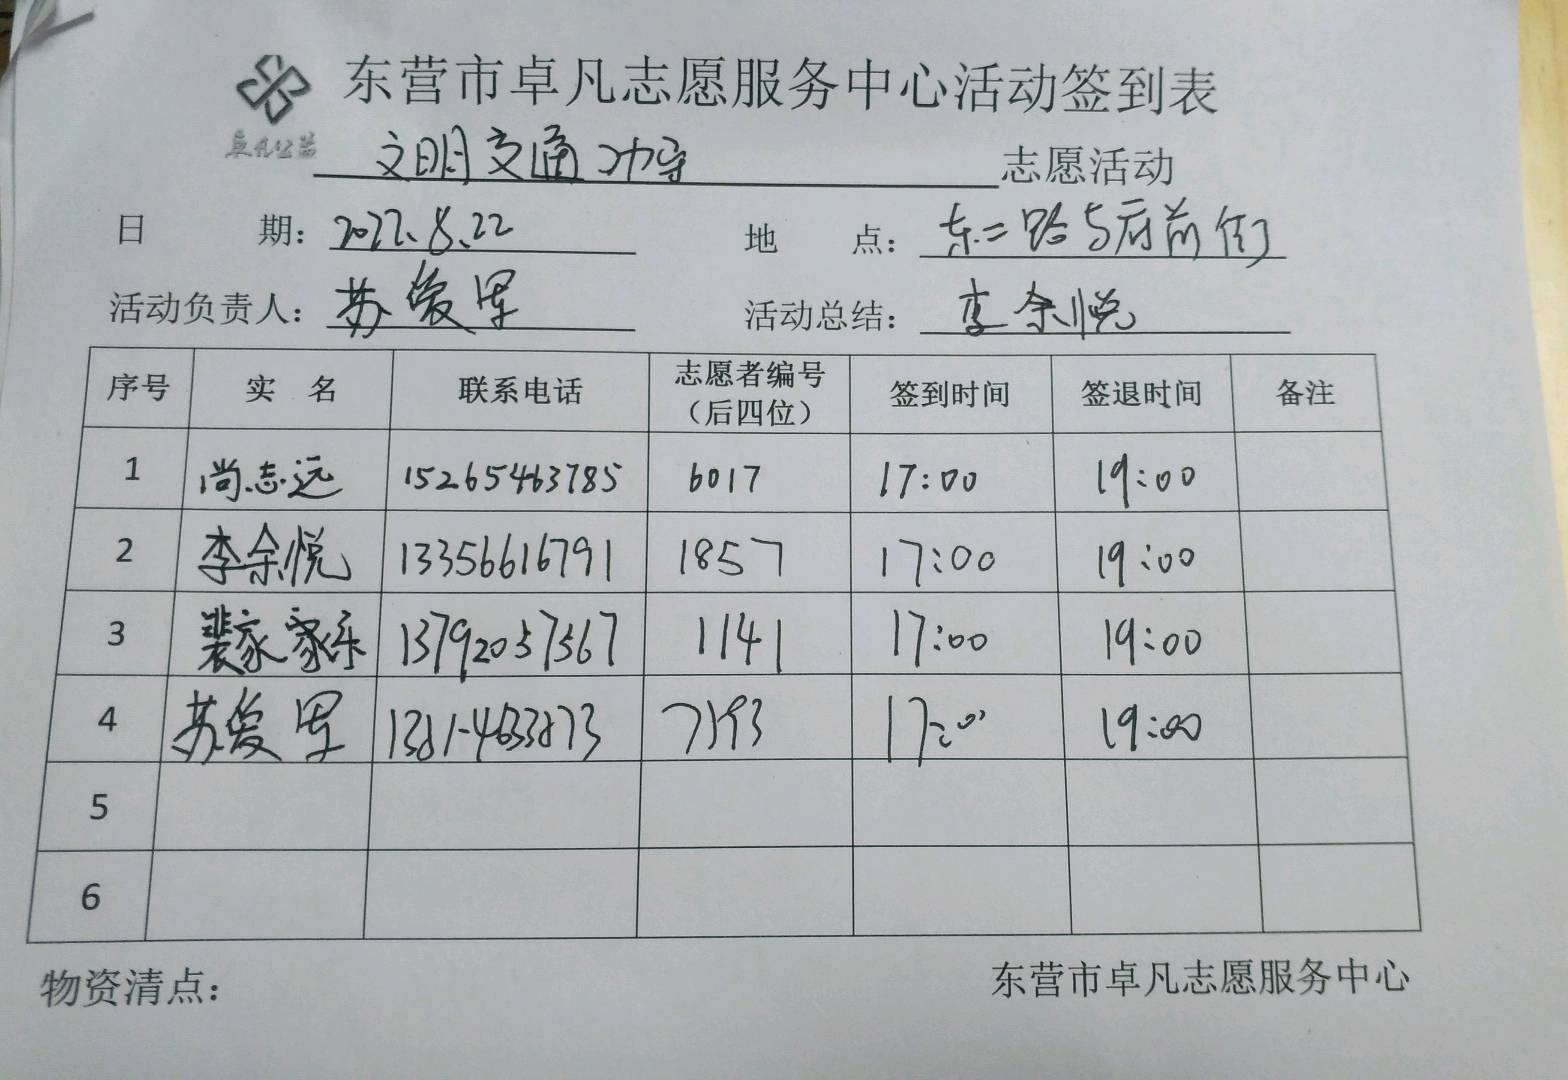 东营市卓凡志愿服务中心活动签到表
卓凡公益
文明交通功守 志愿活动
日 期: 2022.8.22 地 点: 东二路与府前街
活动负责人: 苏爱军 活动总结: 李余悦
序号 实 名 联系电话 志愿者编号(后四位) 签到时间 签退时间 备注
1 尚志远 15265463785 6017 17:00 19:00
2 李余悦 13356616791 1857 17:00 19:00
3 裴家乐 13792057567 1141 17:00 19:00
4 苏爱军 7193 17:00 19:00
5
6
物资清点: 东营市卓凡志愿服务中心